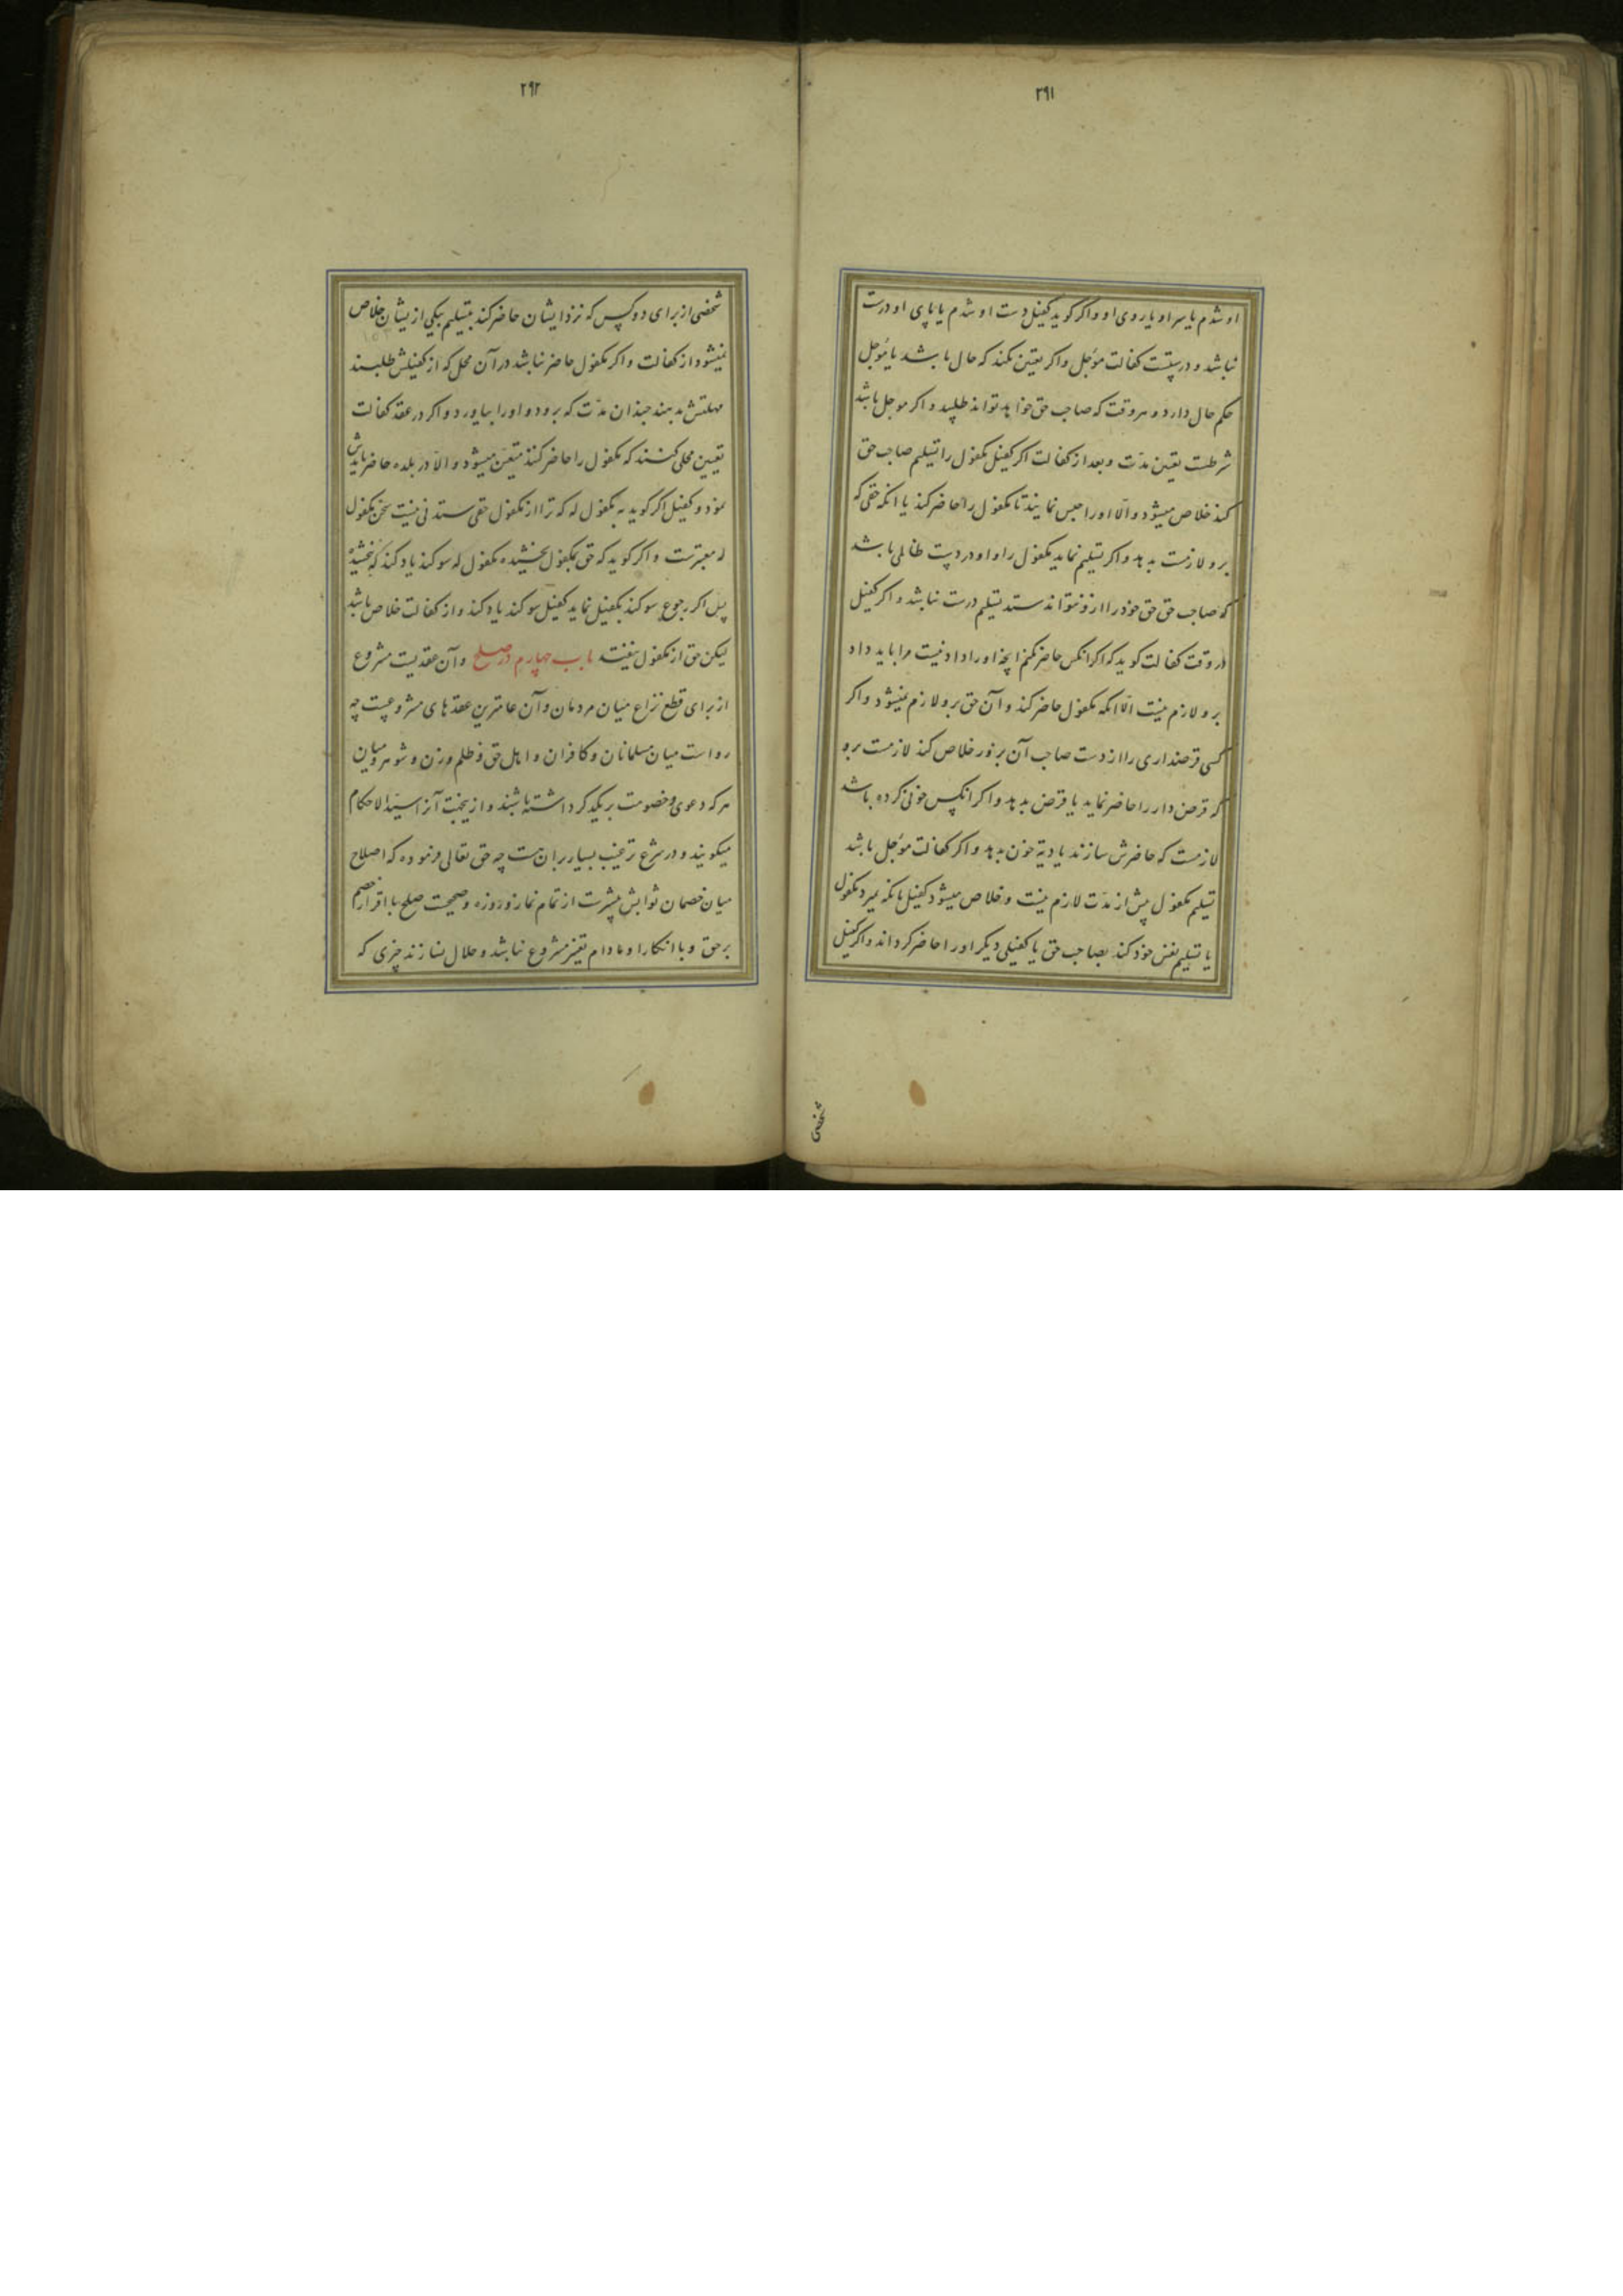 ۲۹۱
او شدم یا سر او یا روی او و اگر گوید کفیل دست او شدم یا پای او درست
نباشد و درستست کفالت مؤجل و اگر تعیین نکند که حال باشد یا مؤجل
حکم حال دارد و هر وقت که صاحب حق خواهد تواند طلبید و اگر موجل باشد
شرطست تعیین مدّت و بعد از کفالت اگر کفیل مکفول را تسلیم صاحب حق
کند خلاص میشود و الّا او را حبس نمایند تا مکفول را حاضر کند یا انکه حقی که
برو لازمست بدهد و اگر تسلیم نماید مکفول را و او در دست ظالمی باشد
که صاحب حق حق خود را ازو نتواند ستد تسلیم درست نباشد و اگر کفیل
در وقت کفالت گوید که اگر انکس حاضر نکنم انچه او را دادنیست مرا باید داد
برو لازم نیست الّا انکه مکفول حاضر کند و آن حق برو لازم نمیشود و اگر
کسی قرضداری را از دست صاحب آن بزور خلاص کند لازمست برو
که قرض دار را حاضر نماید یا قرض بدهد و اگر انکس خونی کرده باشد
لازمست که حاضرش سازند یا دیة خون بدهد و اگر کفالت مؤجل باشد
تسلیم مکفول پیش از مدّت لازم نیست و خلاص میشود کفیل بانکه بمیرد مکفول
یا تسلیم نفس خود کند بصاحب حق یا کفیلی دیگر او را حاضر گرداند و اگر کفیل
شخصی
۲۹۲
شخصی از برای دو کس که نزد ایشان حاضر کند بتسلیم یکی ازیشان خلاص
نمیشود از کفالت و اگر مکفول حاضر نباشد در آن محل که از کفیلش طلبند
مهلتش بدهند چندان مدّت که برود و او را بیاورد و اگر در عقد کفالت
تعیین محلی کنند که مکفول را حاضر کند متعیّن میشود و الّا در بلده حاضر بایدش
نمود و کفیل اگر گوید به مکفول له که ترا از مکفول حقی ستدنی نیست سخن مکفول
له معتبرست و اگر گوید که حق بمکفول بخشیده مکفول له سوگند یاد کند که نبخشیده
پس اگر رجوع سوگند بکفیل نماید کفیل سوگند یاد کند و از کفالت خلاص باشد
لیکن حق از مکفول نیفتد باب چهارم در صلح و آن عقدیست مشروع
از برای قطع نزاع میان مردمان و آن عامترین عقدهای مشروعست چه
رواست میان مسلمانان و کافران و اهل حق و ظلم و زن و شوهر و میان
هر که دعوی و خصومت بر یکدگر داشته باشند و ازینجهت آنرا سیّد الاحکام
میگویند و در شرع ترغیب بسیار بران هست چه حق تعالی فرموده که اصلاح
میان خصمان ثوابش بیشترست از تمام نماز و روزه و صحیحست صلح با اقرار خصم
بر حق و با انکار او مادام تغیّر مشروع نباشد و حلال نسازند چیزی که